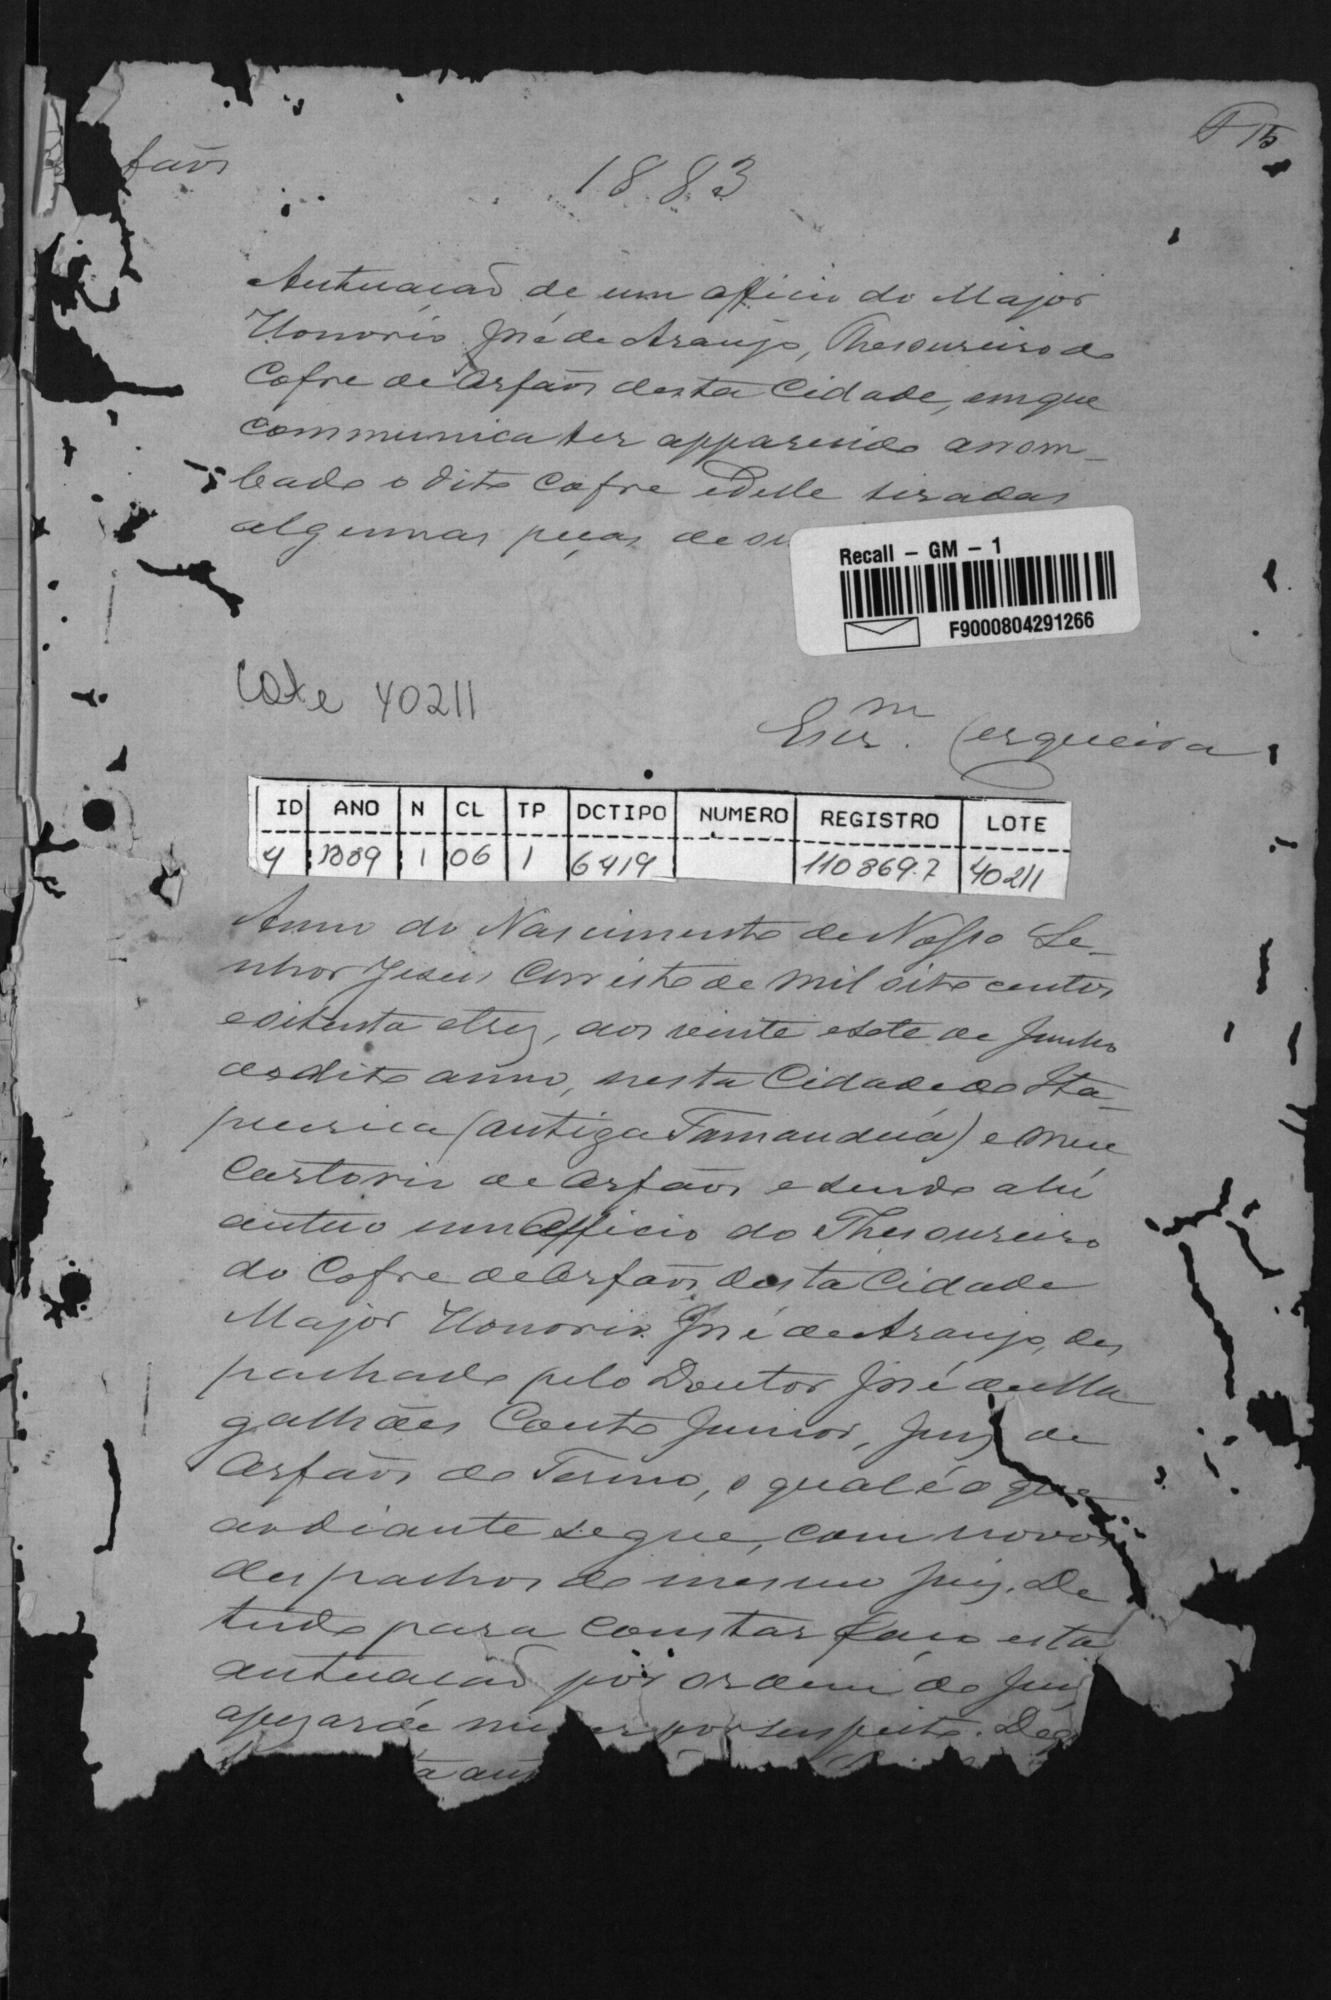 fãos
F 15
1883
Autuação de um officio do Major
Honorio José de Araujo, Thesoureiro do
Cofre de Orfãos desta Cidade, em que
communica ter apparecido arrom-
bado o dito Cofre e delle tiradas
algumas peças de
Recall - GM - 1
F9000804291266
Lote 40211
Escr.m Cerqueira
ID ANO N CL TP DCTIPO NUMERO REGISTRO LOTE
4 1889 1 06 1 6419 110869.7 40211
Anno do Nascimento de Nosso Se-
nhor Jesus Christo de mil oito centos
e oitenta e tres, aos vinte e sete de Junho
do dito anno, nesta Cidade de Ita-
pecerica (antiga Tamanduá) e meu
Cartorio de Orfãos e sendo ahi
autuo um Officio do Thesoureiro
do Cofre de Orfãos desta Cidade
Major Honorio José de Araujo, des
pachado pelo Doutor José de Ma
galhães Couto Junior, Juiz de
Orfãos do Termo, o qual é o que
ao diante segue, com novos
despachos do mesmo Juiz. De
tudo para constar faço esta
autuação por ordem do Juiz
apezar de por suspeito.